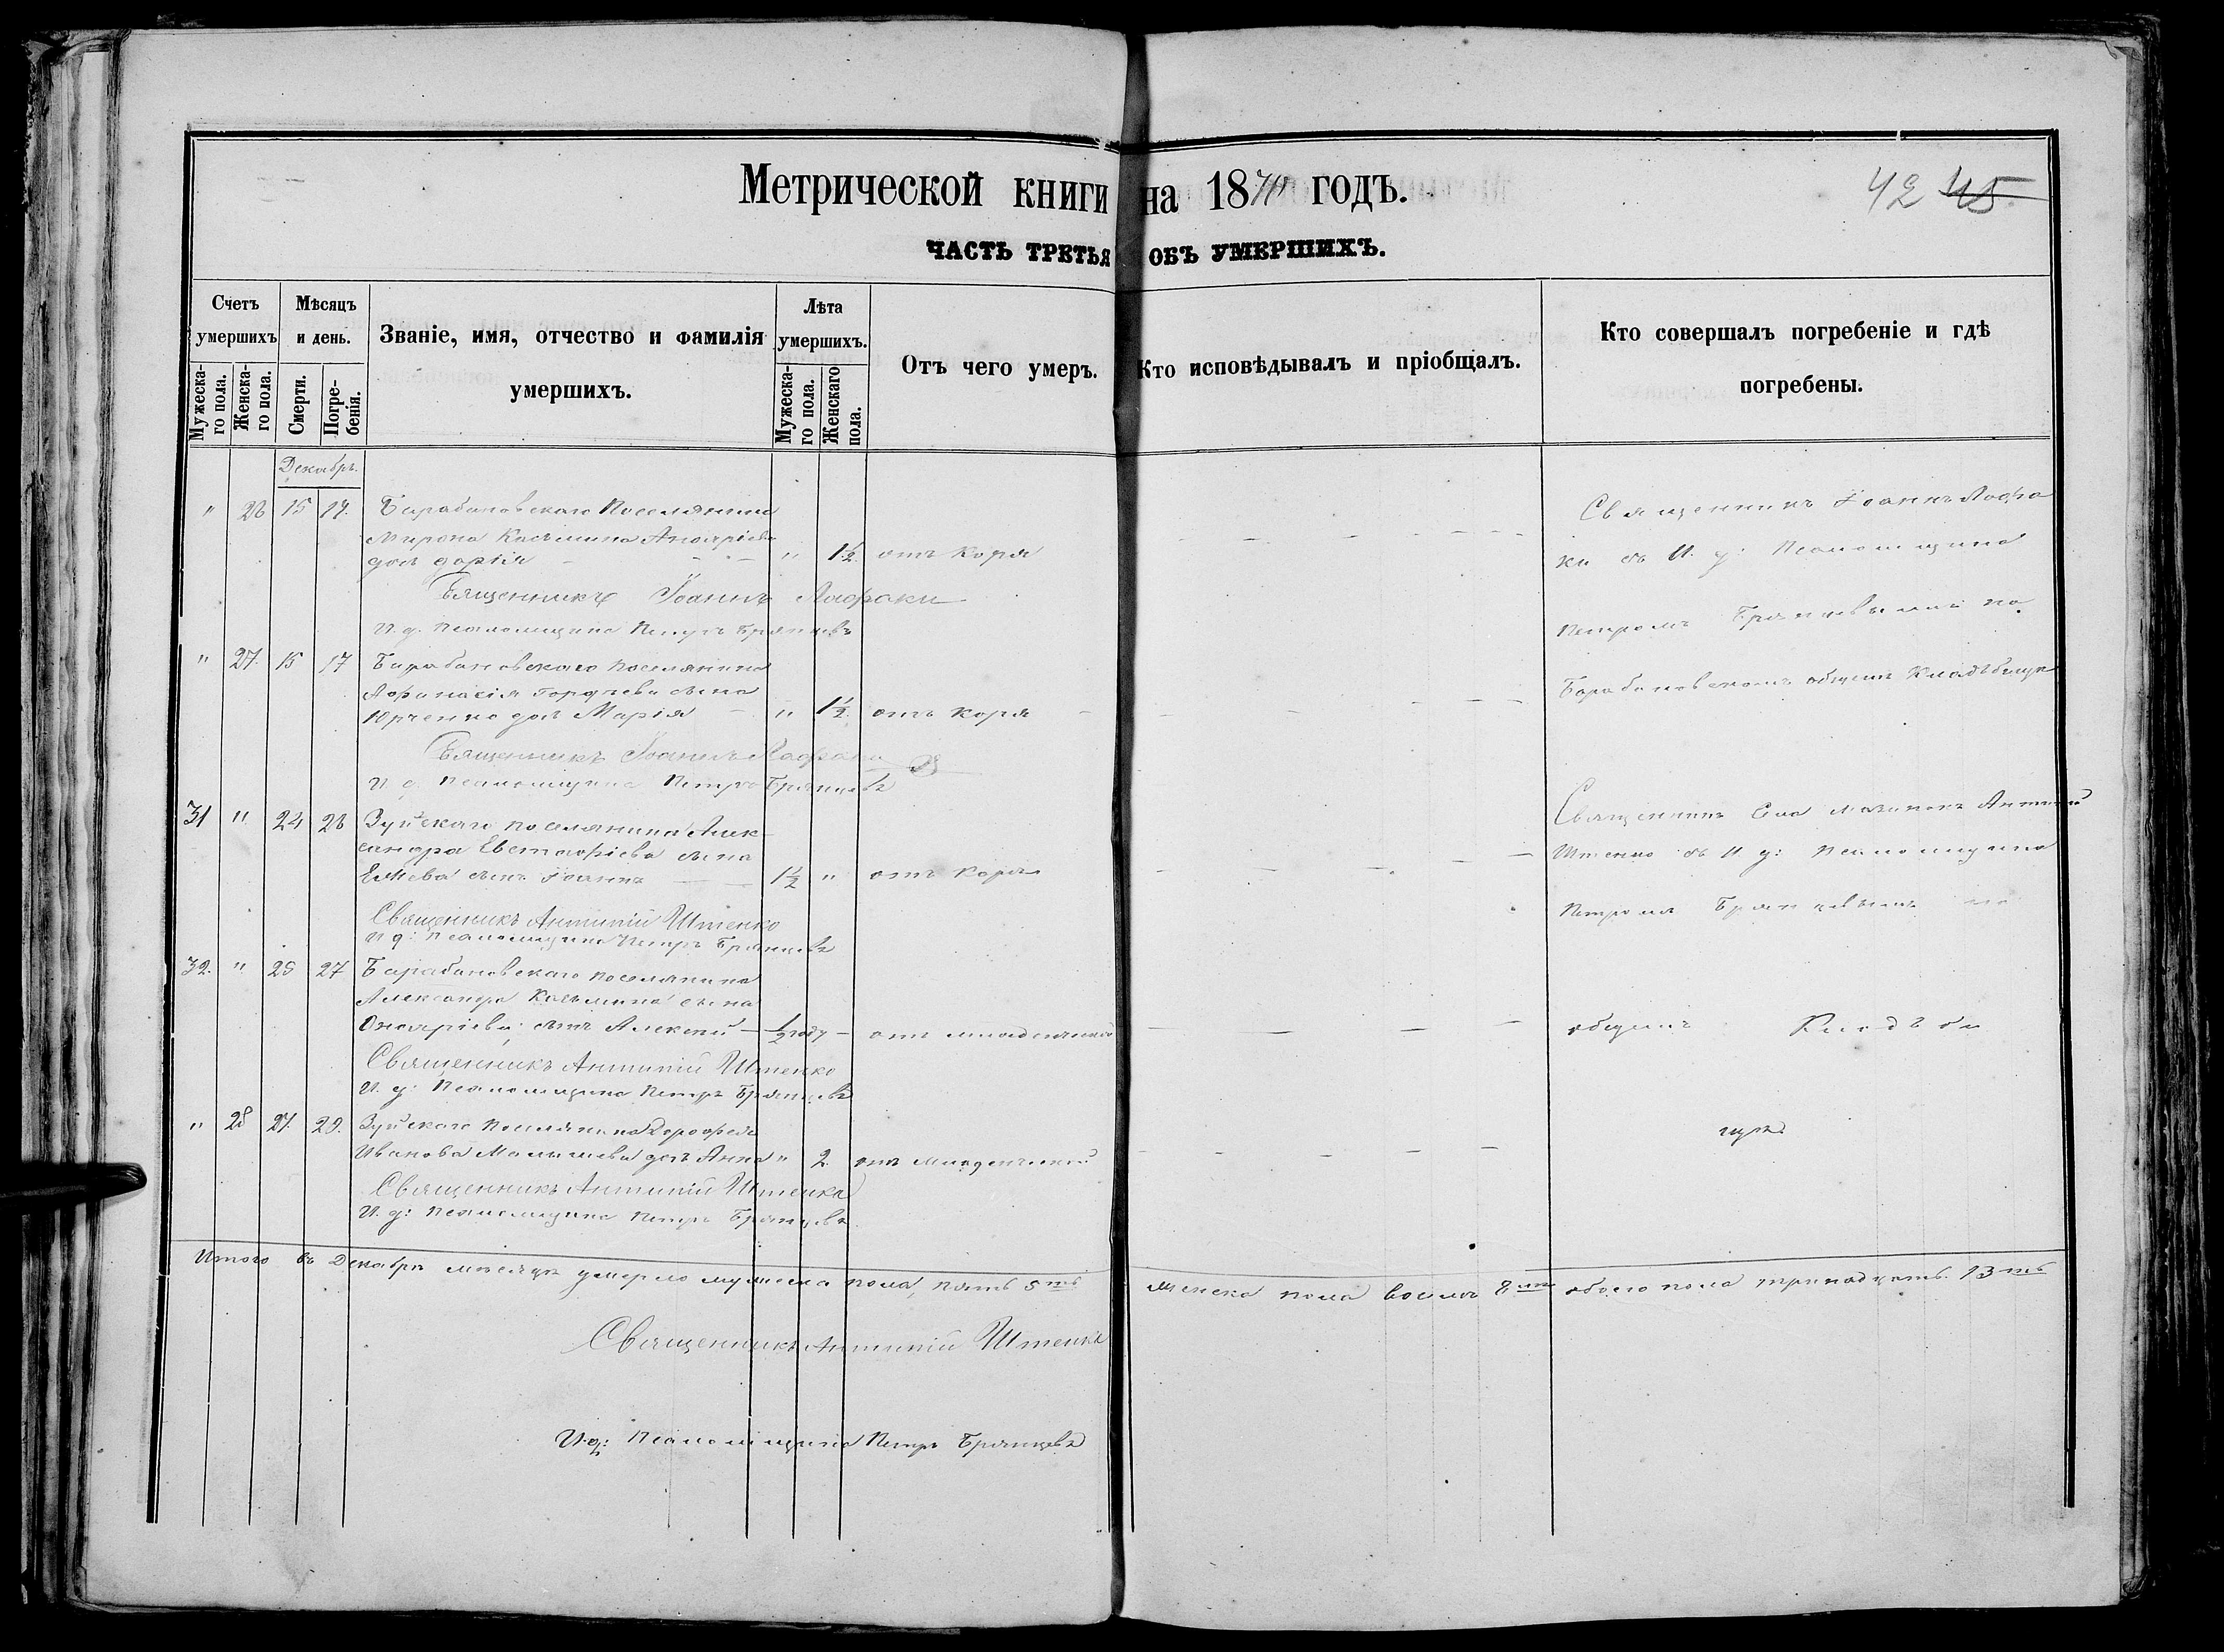 Метрической книги на 18 годъ.
42 45
ЧАСТЬ ТРЕТЬЯ ОБЪ УМЕРШИХЪ.
Счетъ умершихъ
Мужеска-го пола.
Женска-го пола.
Мѣсяцъ и день.
Смерти.
Погре-бенія.
Званіе, имя, отчество и фамилія умершихъ.
Лѣта умершихъ.
Мужеска-го пола.
Женскаго пола.
Отъ чего умер.
Кто исповѣдывалъ и пріобщалъ.
Кто совершалъ погребеніе и гдѣ погребены.
Декабрь.
" 26 15 17. Барабановскаго Поселянина
Мирона Козьмина
дочь дарія " 1½ отъ Коря
Священникъ Іоаннъ Лафаки
И. д. Псаломщика Петръ Брянцевъ
Священникъ Іоаннъ Лафа
ки съ И. д: Псаломщика
Петромъ Брянцевымъ на
Барабановскомъ общемъ Кладъбищѣ
" 27. 15 17 Барабановскаго поселянина
Афанасія Гордѣева сына
Юрченко дочь Марія " 1½ отъ Коря
Священникъ Іоаннъ Лафаки
И. д. Псаломщика Петръ Брянцевъ
31 " 24 26 Зуйскаго поселянина Алек
сандра Евстафіева сына
сынъ Іоаннъ 1½ " отъ Коря
Священникъ Антипій Штенко
И д: Псаломщика Петръ Брянцевъ
Священникъ Антипій
Штенко съ И. д: Псаломщика
Петромъ Брянцевымъ на
32. " 25 27 Барабановскаго поселянина
Александра Козьмина сына
сынъ Алексій ½ году отъ младенческой
Священникъ Антипій Штенко
И. д: Псаломщика Петръ Брянцевъ
общемъ Кладъби
щѣ.
" 28 27. 29. Зуйскаго Поселянина Дорофея
Иванова Малышева дочь Анна " 2. отъ Младенческой
Священникъ Антипій Штенко
И. д: Псаломщика Петръ Брянцевъ.
Итого въ Декабрѣ мѣсяцѣ умерло мужеска пола, пять 5ть женска пола восемь 8мь обоего пола тринадцать. 13ть
Священникъ Антипій Штенко
И. д: Псаломщика Петръ Брянцевъ